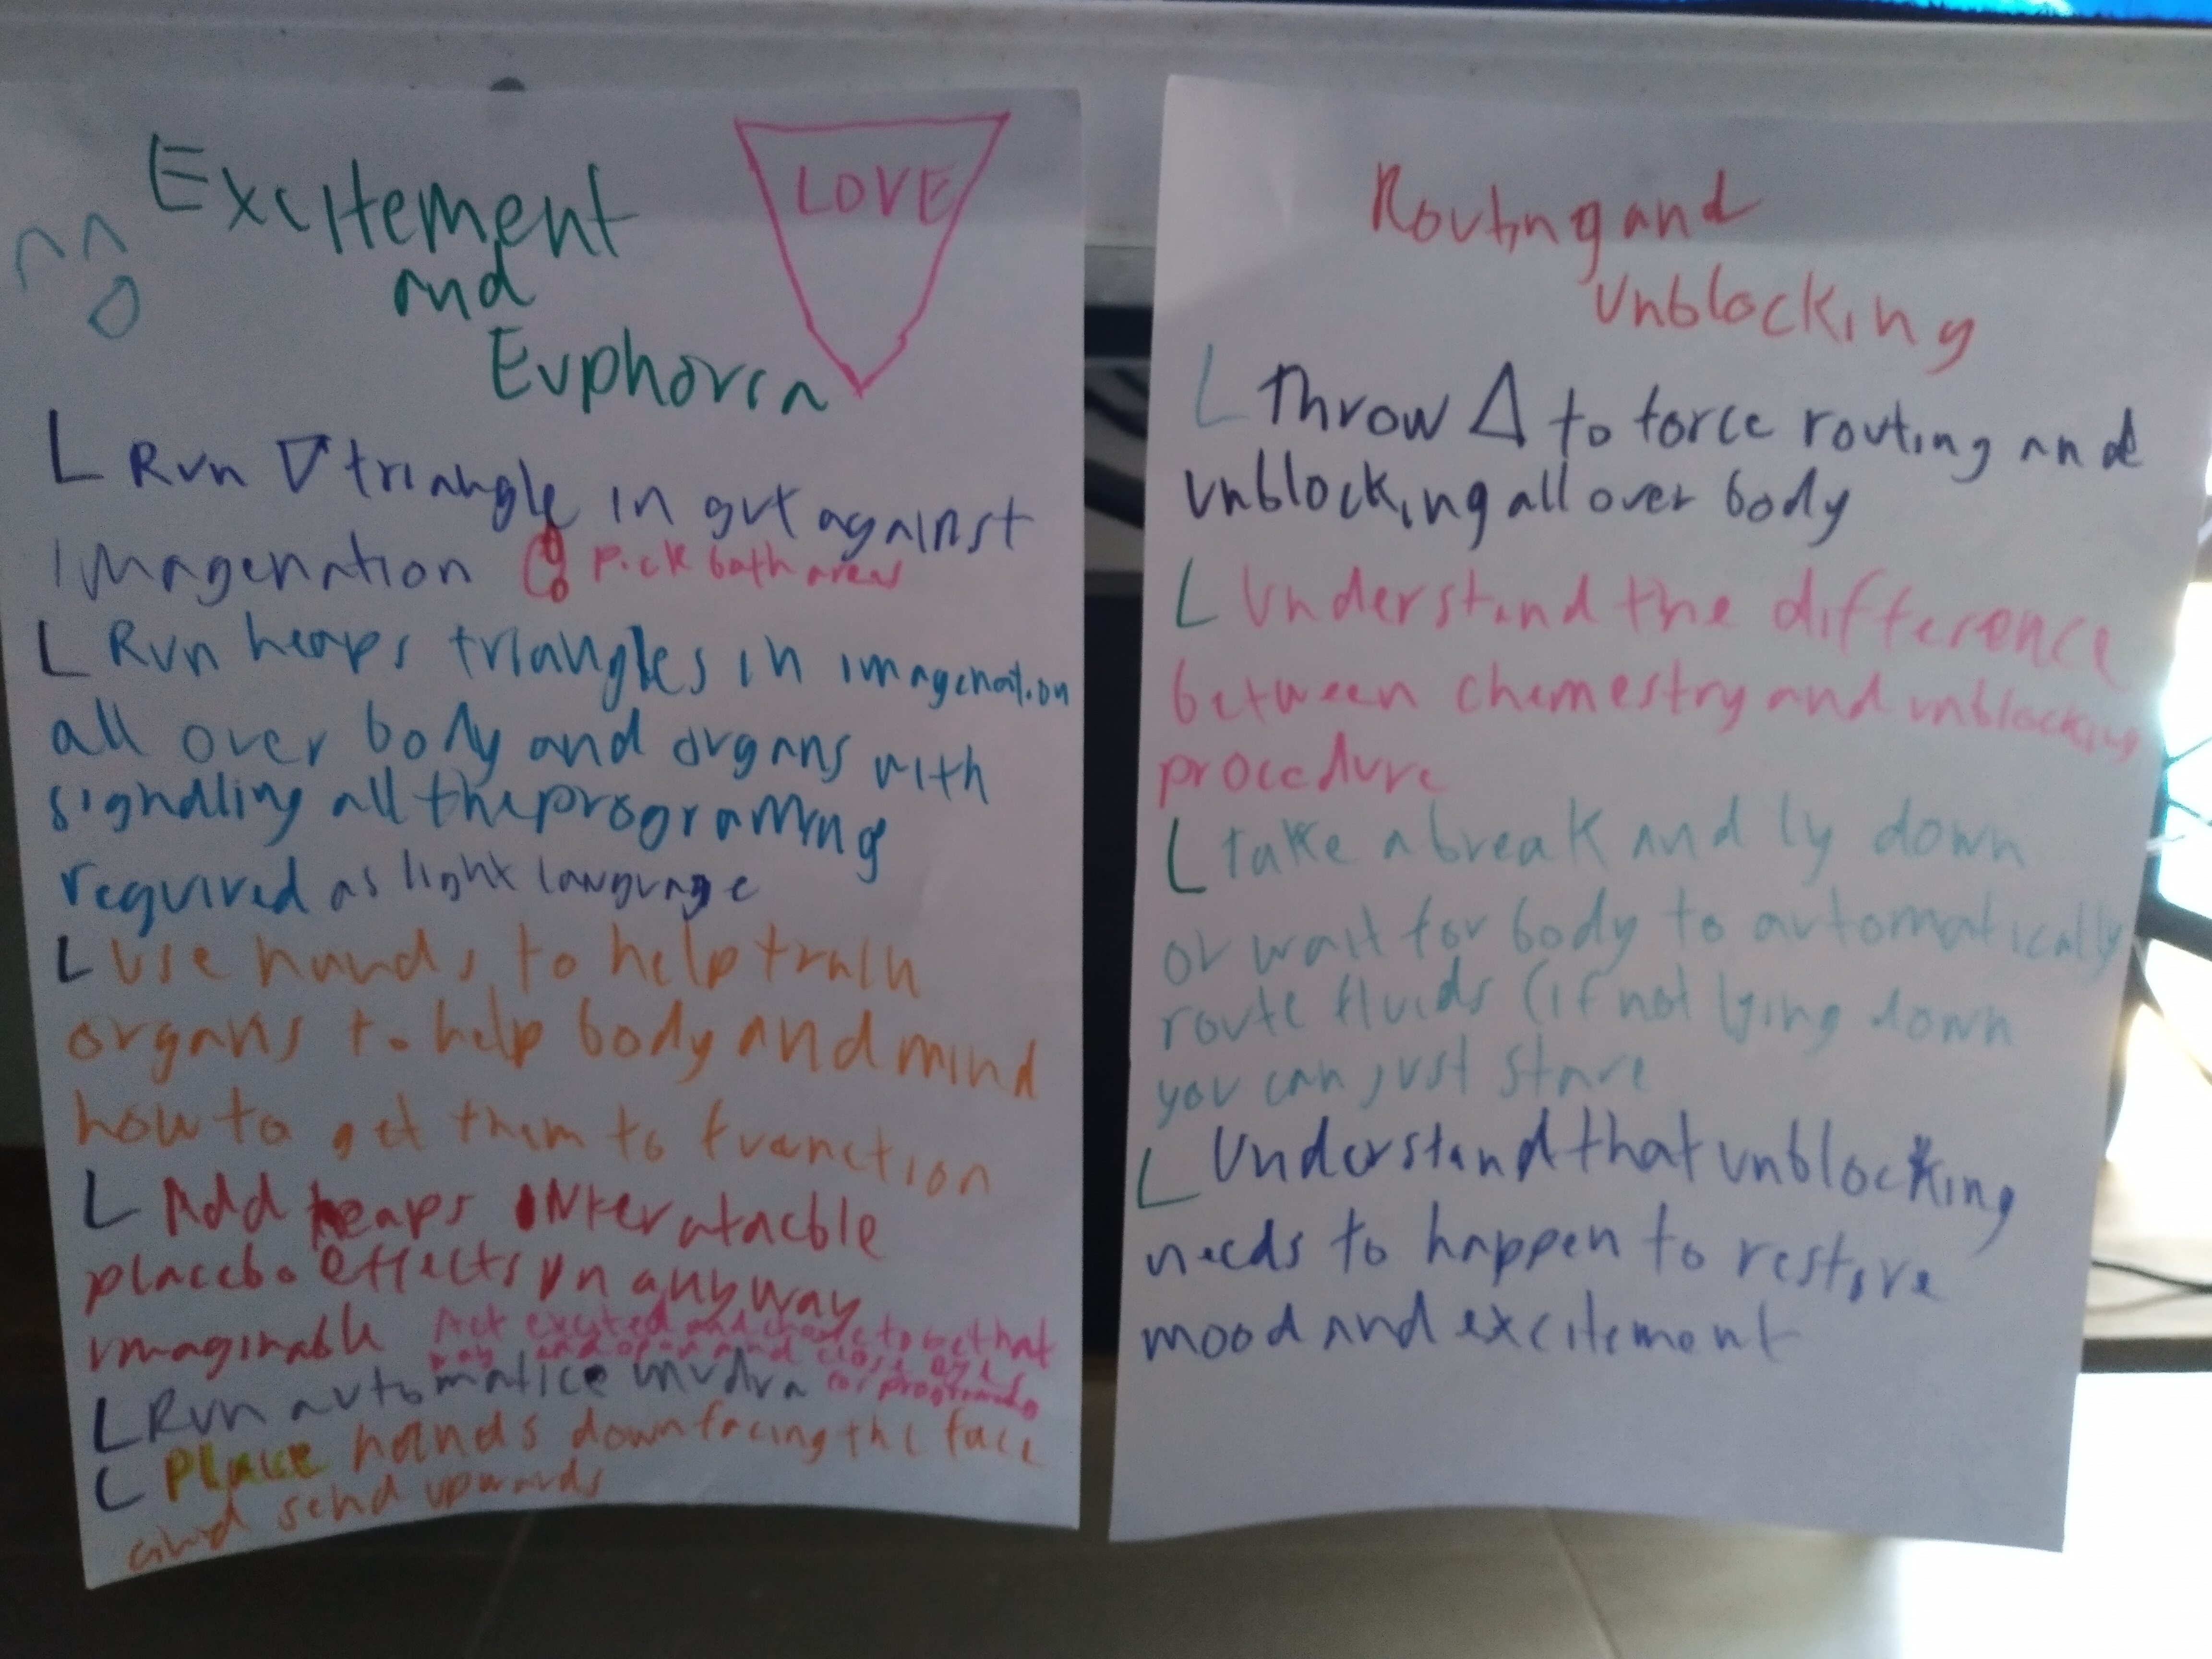 Excitement
and
Euphoria
LOVE
L Run ▽ triangle in gut against
imagenation pick both areas
L Run heaps triangles in imagenation
all over body and organs with
signalling all the programing
required as light language
L Use hands to help train
organs to help body and mind
how to get them to function
L Add heaps
placebo effects in any way
imaginable Act excited and choose to be that
way and open and close eyes
L Run automatice mudra for programs
L Place hands down facing the face
and send upwards
Routing and
unblocking
L Throw △ to force routing and
unblocking all over body
L Understand the difference
between chemestry and unblocking
procedure
L take a break and ly down
or wait for body to automatically
route fluids (if not lying down
you can just stare
L Understand that unblocking
needs to happen to restore
mood and excitement